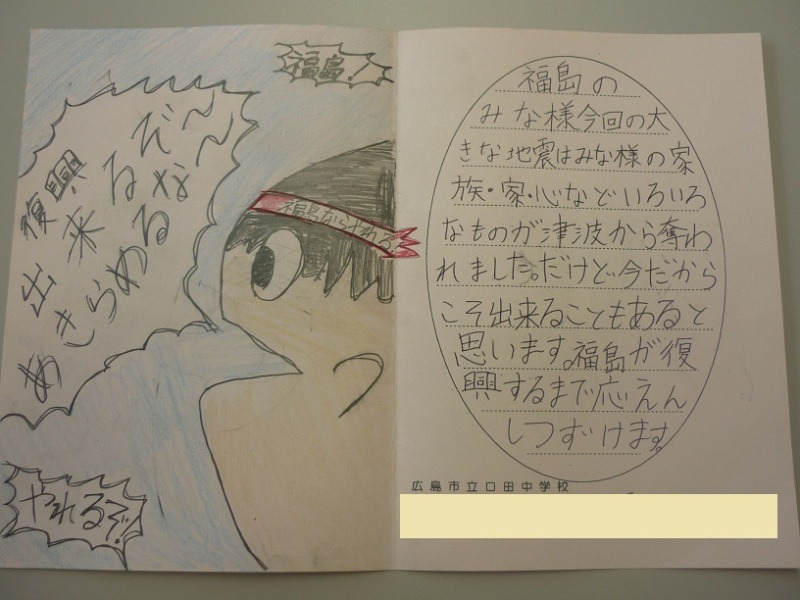 福島!
復興
出来るだ
あきらめるな〜〜
福島ならやれる!
やれるぞ!!
福島の
みな様今回の大
きな地震はみな様の家
族・家・心などいろいろ
なものが津波から奪わ
れました。だけど、今だから
こそ出来ることもあると
思います。福島が復
興するまで応えん
しつずけます。
広島市立口田中学校